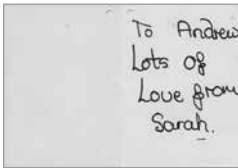 To Andrew
Lots of
Love from
Sarah.